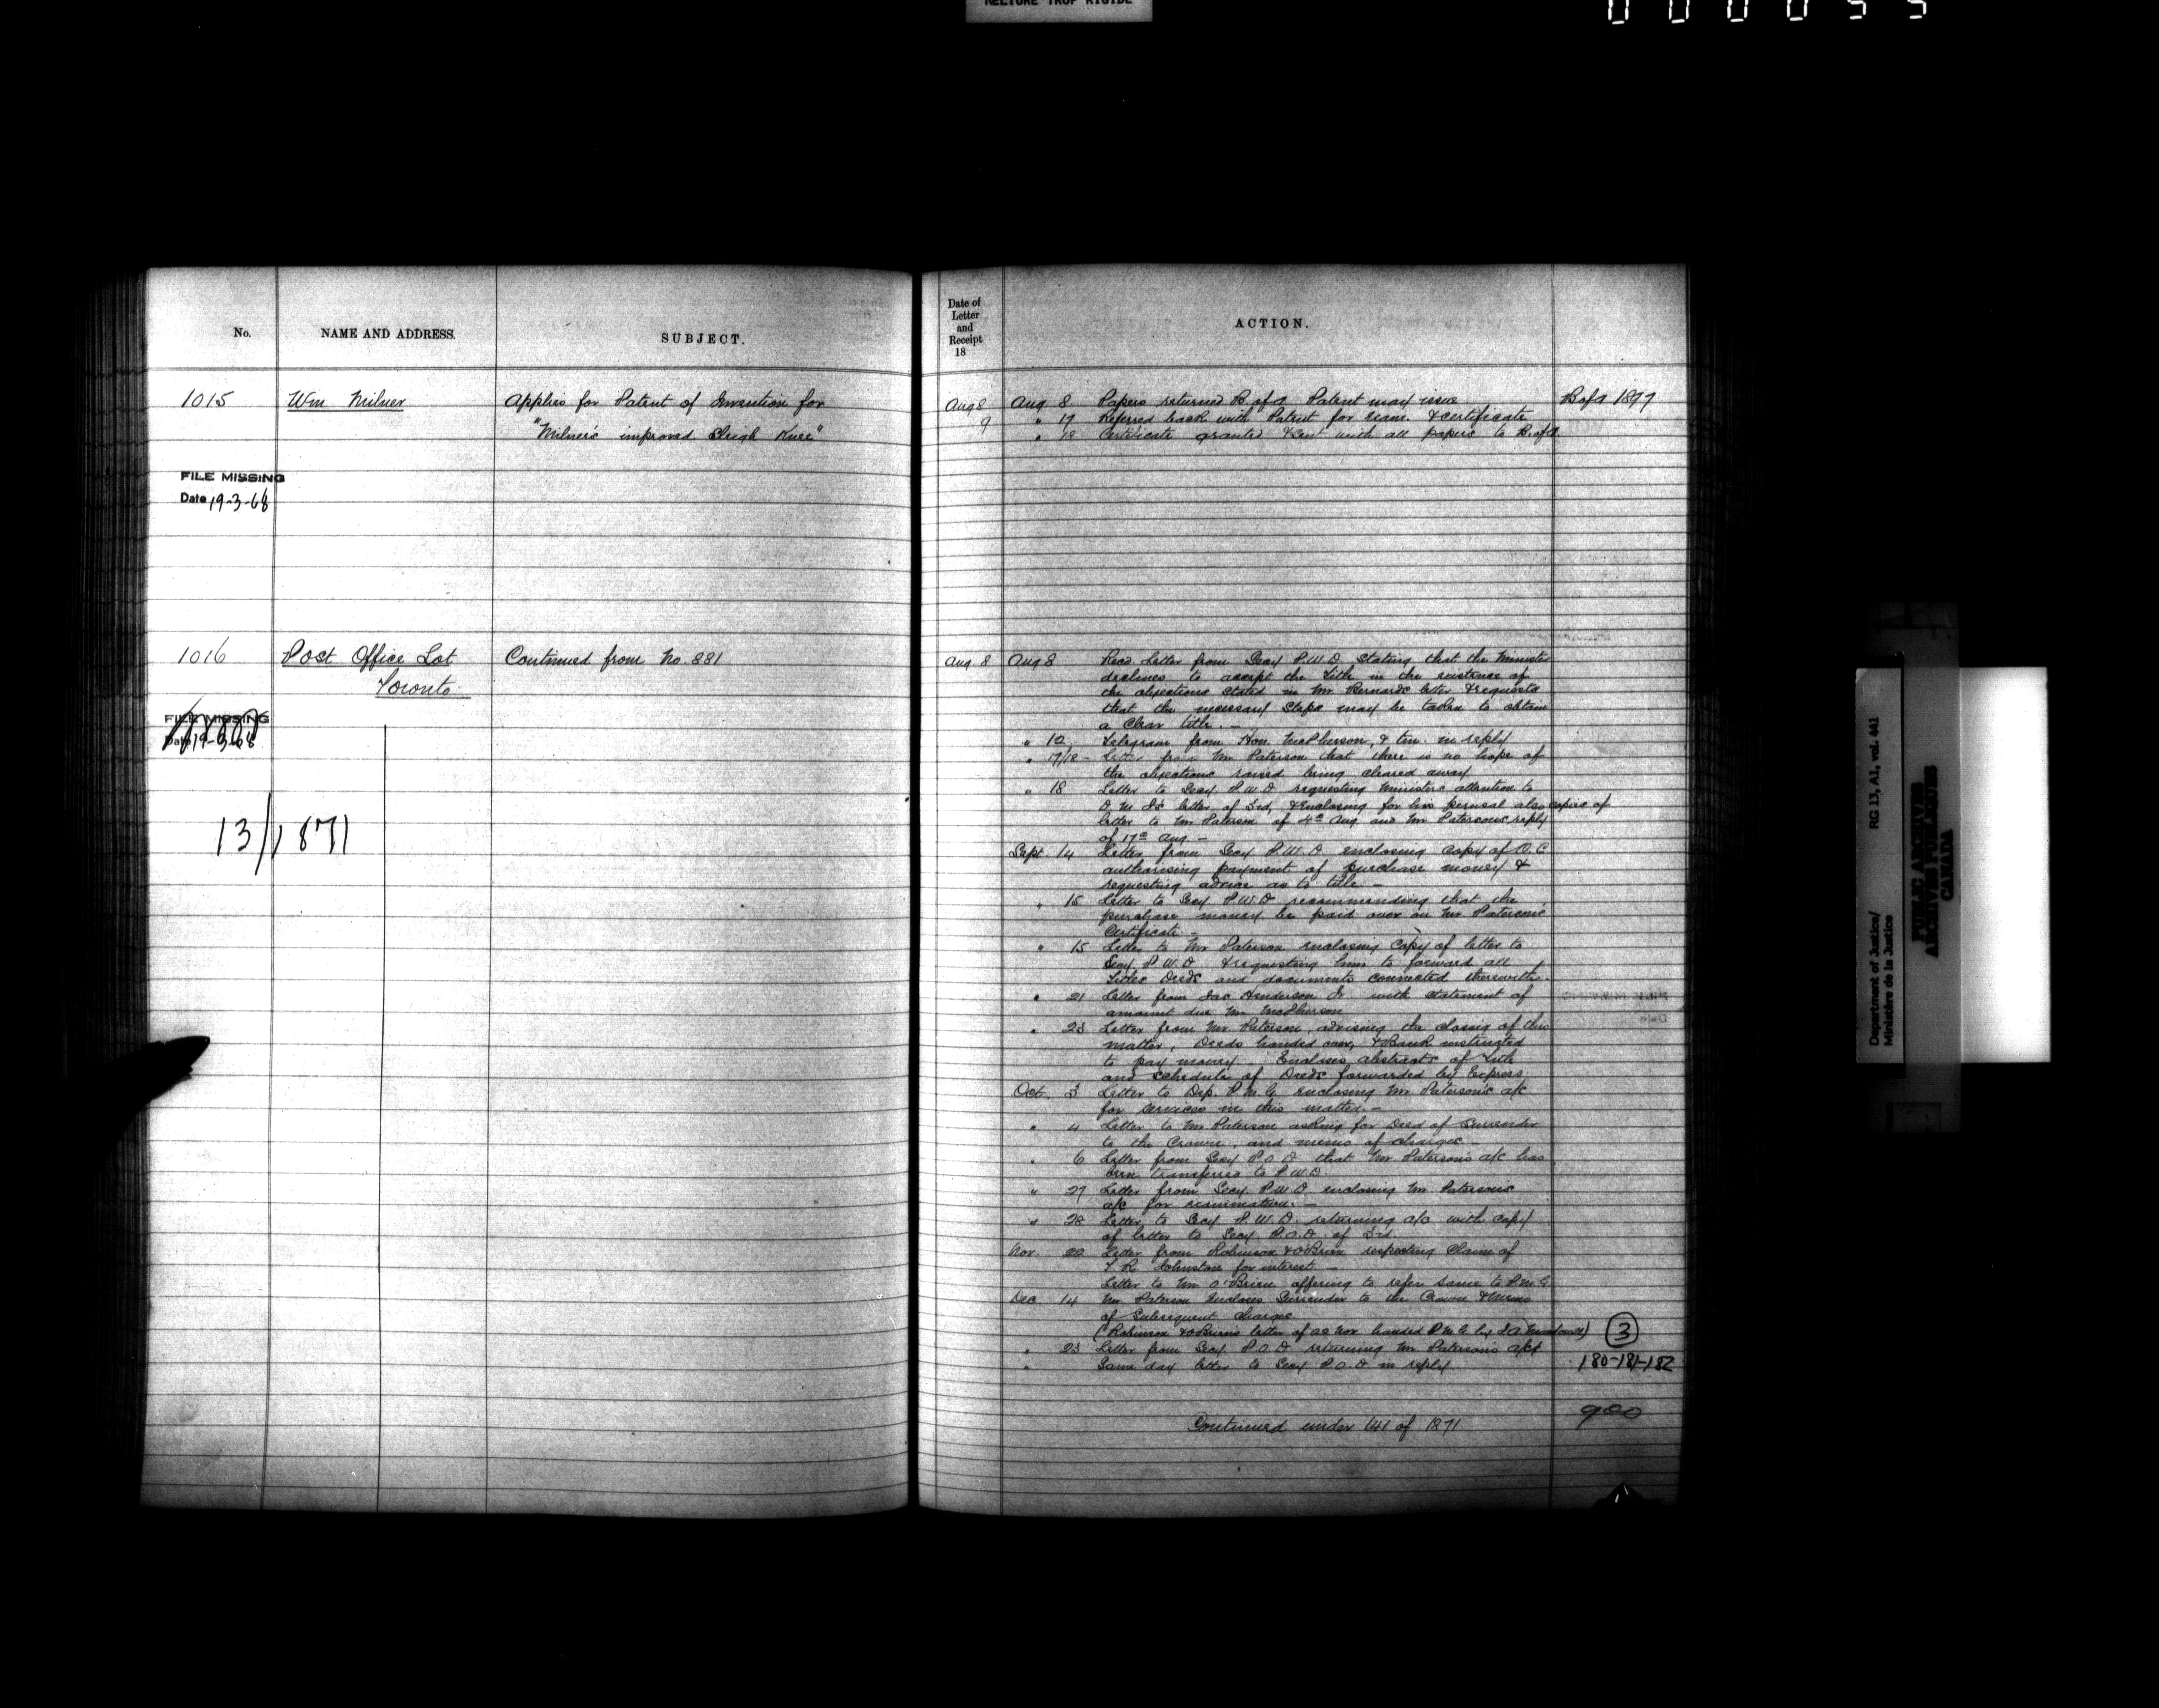 RELIURE TROP RIGIDE
No.
NAME AND ADDRESS.
SUBJECT.
1015
Wm Milner
Applies for Patent of Invention for
"Milner's improved Sleigh Knee"
FILE MISSING
Date 19-3-68
1016
Post Office Lot
Toronto
Continued from No. 881
FILE MISSING
Date 19-3-68
13/1871
Date of
Letter
and
Receipt
18
ACTION.
Aug 8
Aug 8 Papers returned B of A Patent may issue
B of A 1899
9
" 17 Referred back with Patent for exam. & certificate
" 18 Certificate granted & sent with all papers to B. of A.
Aug. 8
Aug 8 Recd. Letter from Secy P.W.D. stating that the Minister
declines to accept the Title in the existence of
the objections stated in Mr Bernard's letter & requests
that the necessary steps may be taken to obtain
a Clear title. —
" 12 Telegram from Hon. McPherson, & in reply
" 17/18 – Letter from Mr Paterson that there is no hope of
the objections raised being cleared away
" 18 Letter to Secy P.W.D requesting Ministers attention to
letter of 3rd, & enclosing for his perusal also copies of
letter to Mr Paterson of 4th Aug and Mr Paterson's reply
of 17th Aug —
Sept. 14 Letter from Secy P.W.D enclosing copy of O.C
authorising payment of purchase money &
requesting advice as to title —
" 15 Letter to Secy P.W.D recommending that the
purchase money be paid over on Mr Paterson's
Certificate —
" 15 Letter to Mr Paterson enclosing Copy of letter to
Secy P.W.D & requesting him to forward all
Titles Deeds and documents connected therewith.
" 21 Letter from Jas Henderson Jr with statement of
amount due Mr McPherson
" 23 Letter from Mr Paterson, advising the closing of this
matter, Deeds handed over, & Bank instructed
to pay money — Encloses abstracts of Title
and schedule of Deeds forwarded by Express
Oct. 3 Letter to Dep. P.M.G enclosing Mr Paterson's a/c
for services in this matter. —
" 4 Letter to Mr Paterson asking for Deed of Surrender
to the Crown, and memo of charges —
" 6 Letter from Secy P.O.D that Mr Paterson's a/c has
been transferred to P.W.D.
" 27 Letter from Secy P.W.D enclosing Mr Paterson's
a/c for examination. —
" 28 Letter to Secy P.W.D. returning a/c with copy
of letter to Secy P.O.D of 3rd
Nov. 22 Letter from Robinson & O'Brien respecting Claim of
Johnston for interest —
Letter to Mr O'Brien offering to refer same to P.M.G
Dec 14 Mr Paterson encloses Surrender to the Crown & Memo
of Subsequent charges
(Robinson & O'Brien's letter of 22 Nov handed P.M.G by
3
" 23 Letter from Secy P.O.D returning Mr Paterson's a/c
" Same day letter to Secy P.O.D in reply
180-181-182
900
Continued under 141 of 1871
Department of Justice/
Ministère de la Justice
RG 13, A1, vol. 441
PUBLIC ARCHIVES
ARCHIVES PUBLIQUES
CANADA